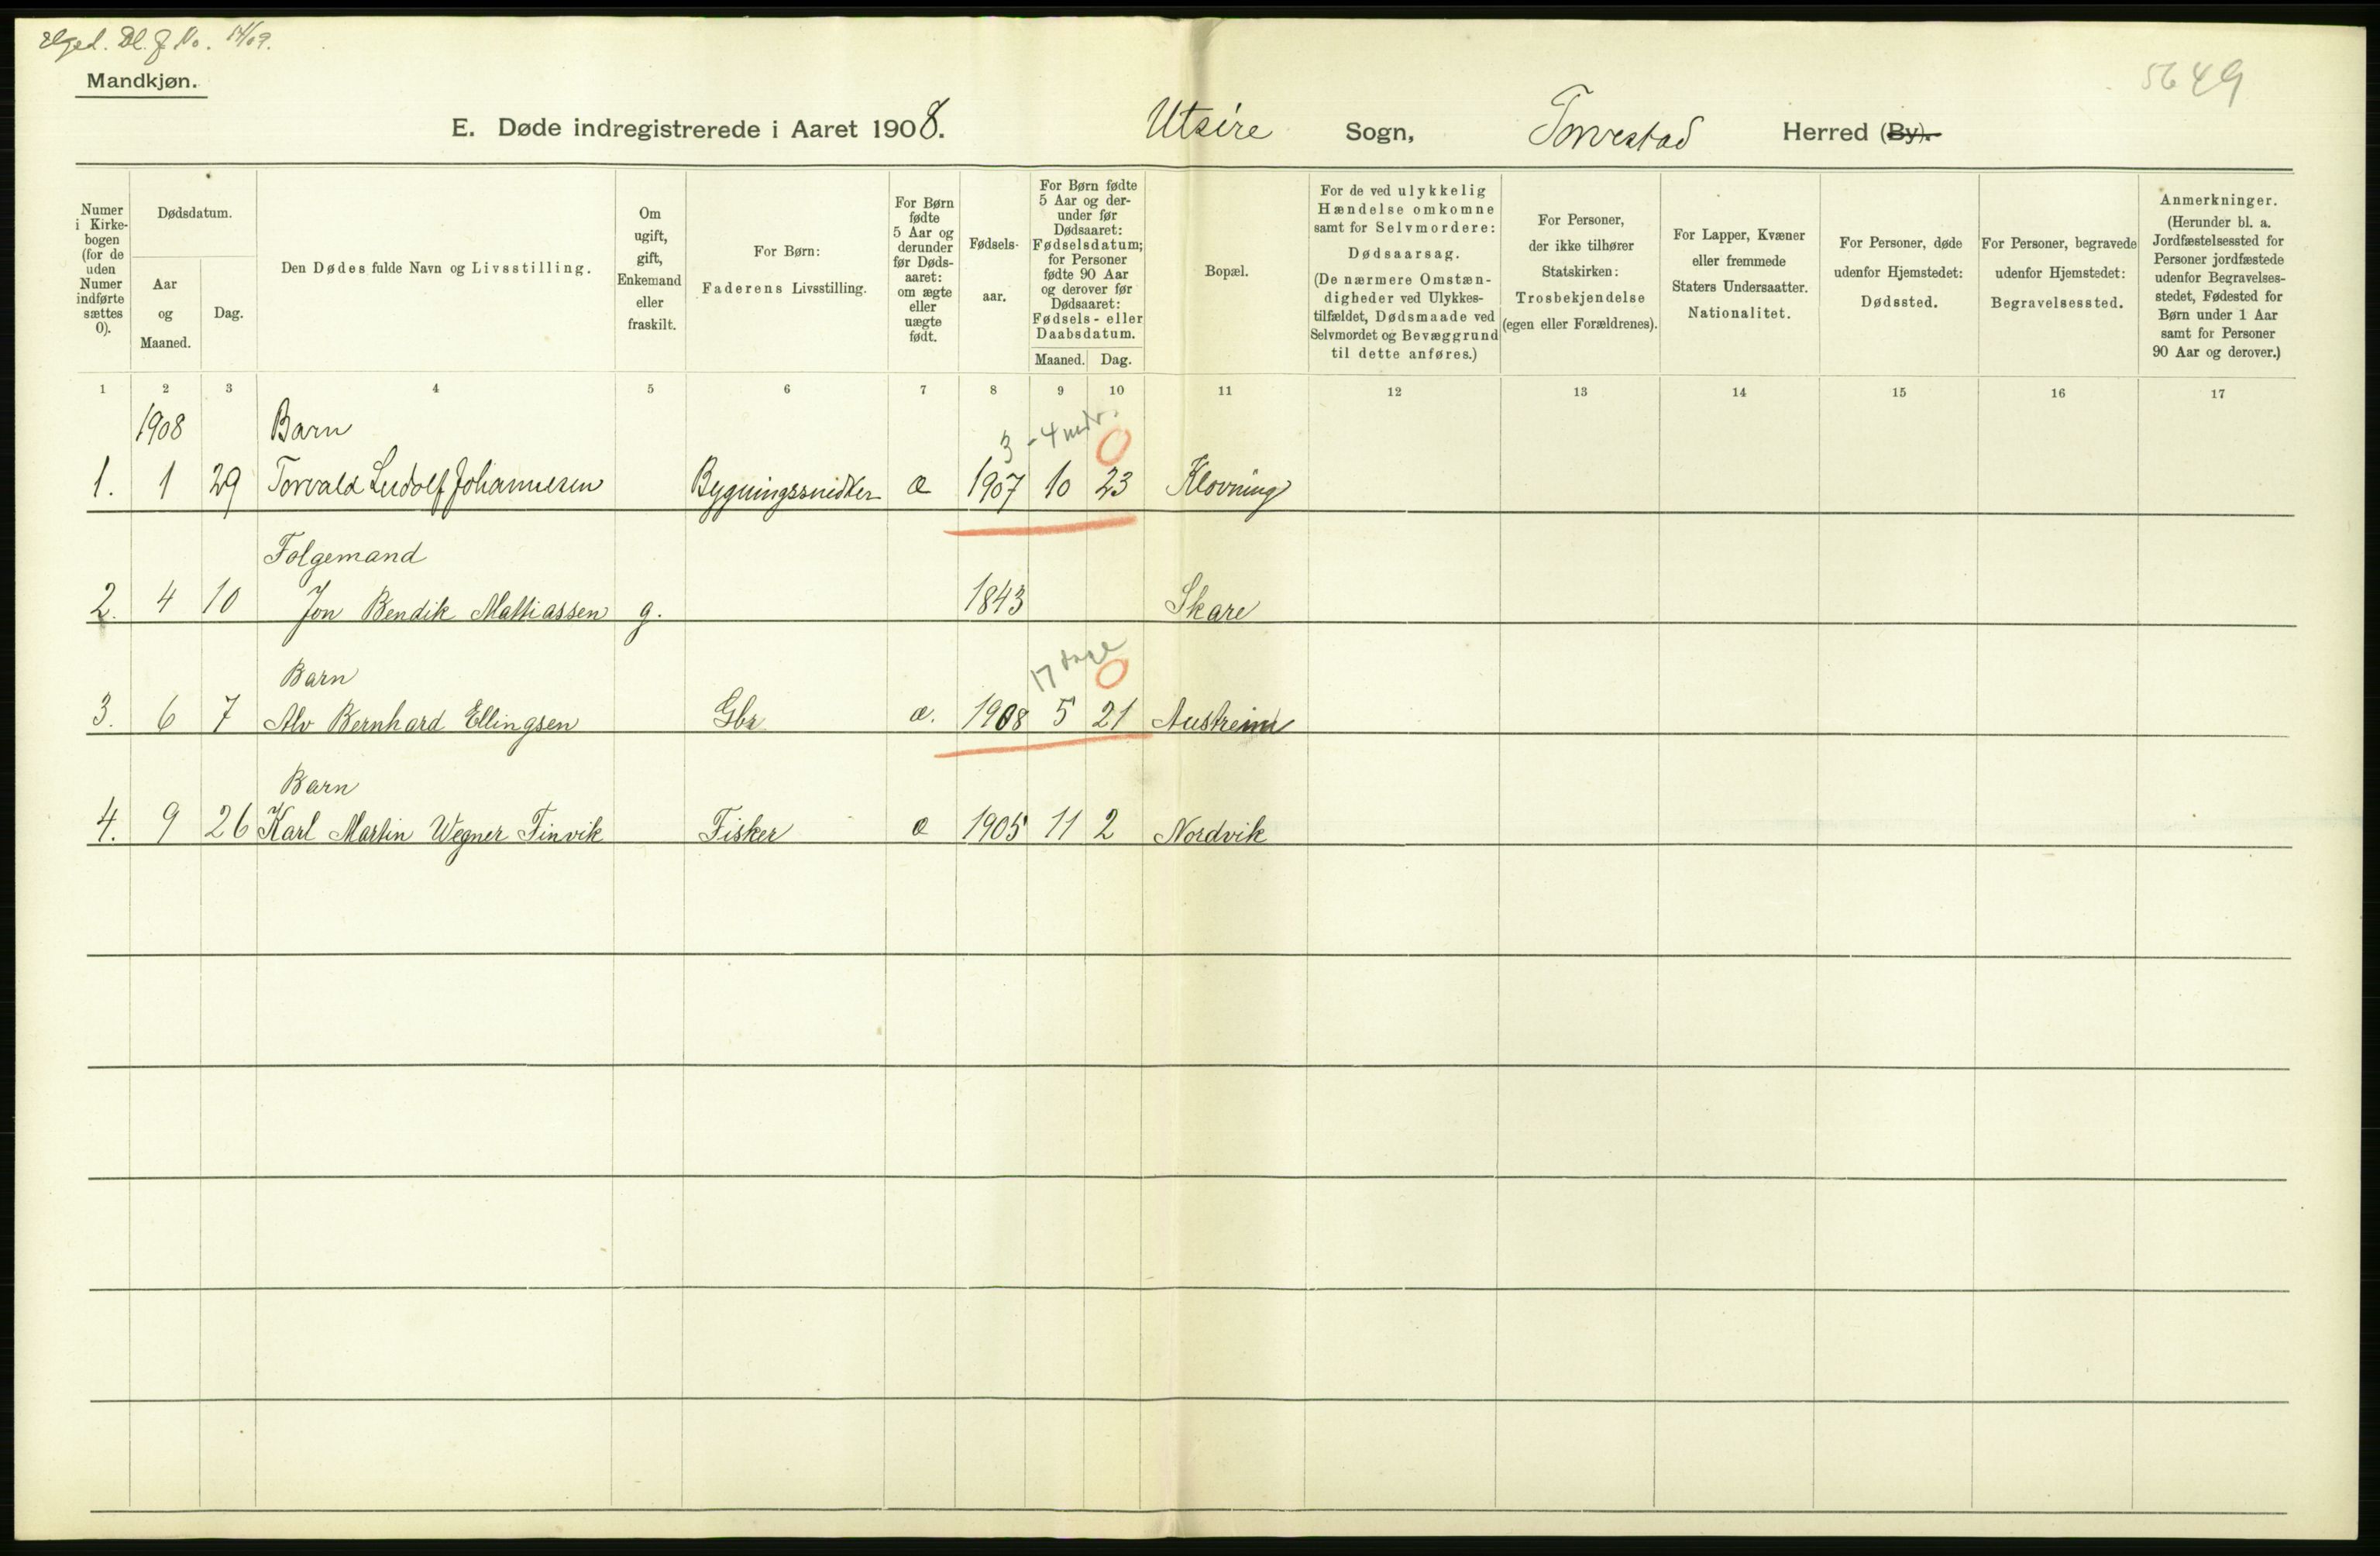 Dl. J. No. 14/09.
Mandkjøn.
5649
E. Døde indregistrerede i Aaret 1908. Utsire Sogn, Torvestad Herred (By).
Numer i Kirkebogen (for de uden Numer indførte sættes 0).
Dødsdatum.
Aar og Maaned.
Dag.
Den Dødes fulde Navn og Livsstilling.
Om ugift, gift, Enkemand eller fraskilt.
For Børn: Faderens Livsstilling.
For Børn fødte 5 Aar og derunder før Dødsaaret: om ægte eller uægte født.
Fødselsaar.
For Børn fødte 5 Aar og derunder før Dødsaaret: Fødselsdatum; for Personer fødte 90 Aar og derover før Dødsaaret: Fødsels- eller Daabsdatum.
Maaned. Dag.
Bopæl.
For de ved ulykkelig Hændelse omkomne samt for Selvmordere: Dødsaarsag. (De nærmere Omstændigheder ved Ulykkestilfældet, Dødsmaade ved Selvmordet og Bevæggrund til dette anføres.)
For Personer, der ikke tilhører Statskirken: Trosbekjendelse (egen eller Forældrenes).
For Lapper, Kvæner eller fremmede Staters Undersaatter. Nationalitet.
For Personer, døde udenfor Hjemstedet: Dødssted.
For Personer, begravede udenfor Hjemstedet: Begravelsessted.
Anmerkninger. (Herunder bl. a. Jordfæstelsessted for Personer jordfæstede udenfor Begravelsesstedet, Fødested for Børn under 1 Aar samt for Personer 90 Aar og derover.)
1 2 3 4 5 6 7 8 9 10 11 12 13 14 15 16 17
1908 Barn 3-4 mdr. 0
1. 1 29 Torvald Ludolf Johannesen Bygningssnidker æ 1907 10 23 Klovning
Folgemand
2. 4 10 Jon Bendik Mattiassen g. 1843 Skare
Barn 17 dage 0
3. 6 7 Alv Bernhard Ellingsen Gbr æ. 1908 5 21 Austreim
Barn
4. 9 26 Karl Martin Wegner Finvik Fisker æ 1905 11 2 Nordvik